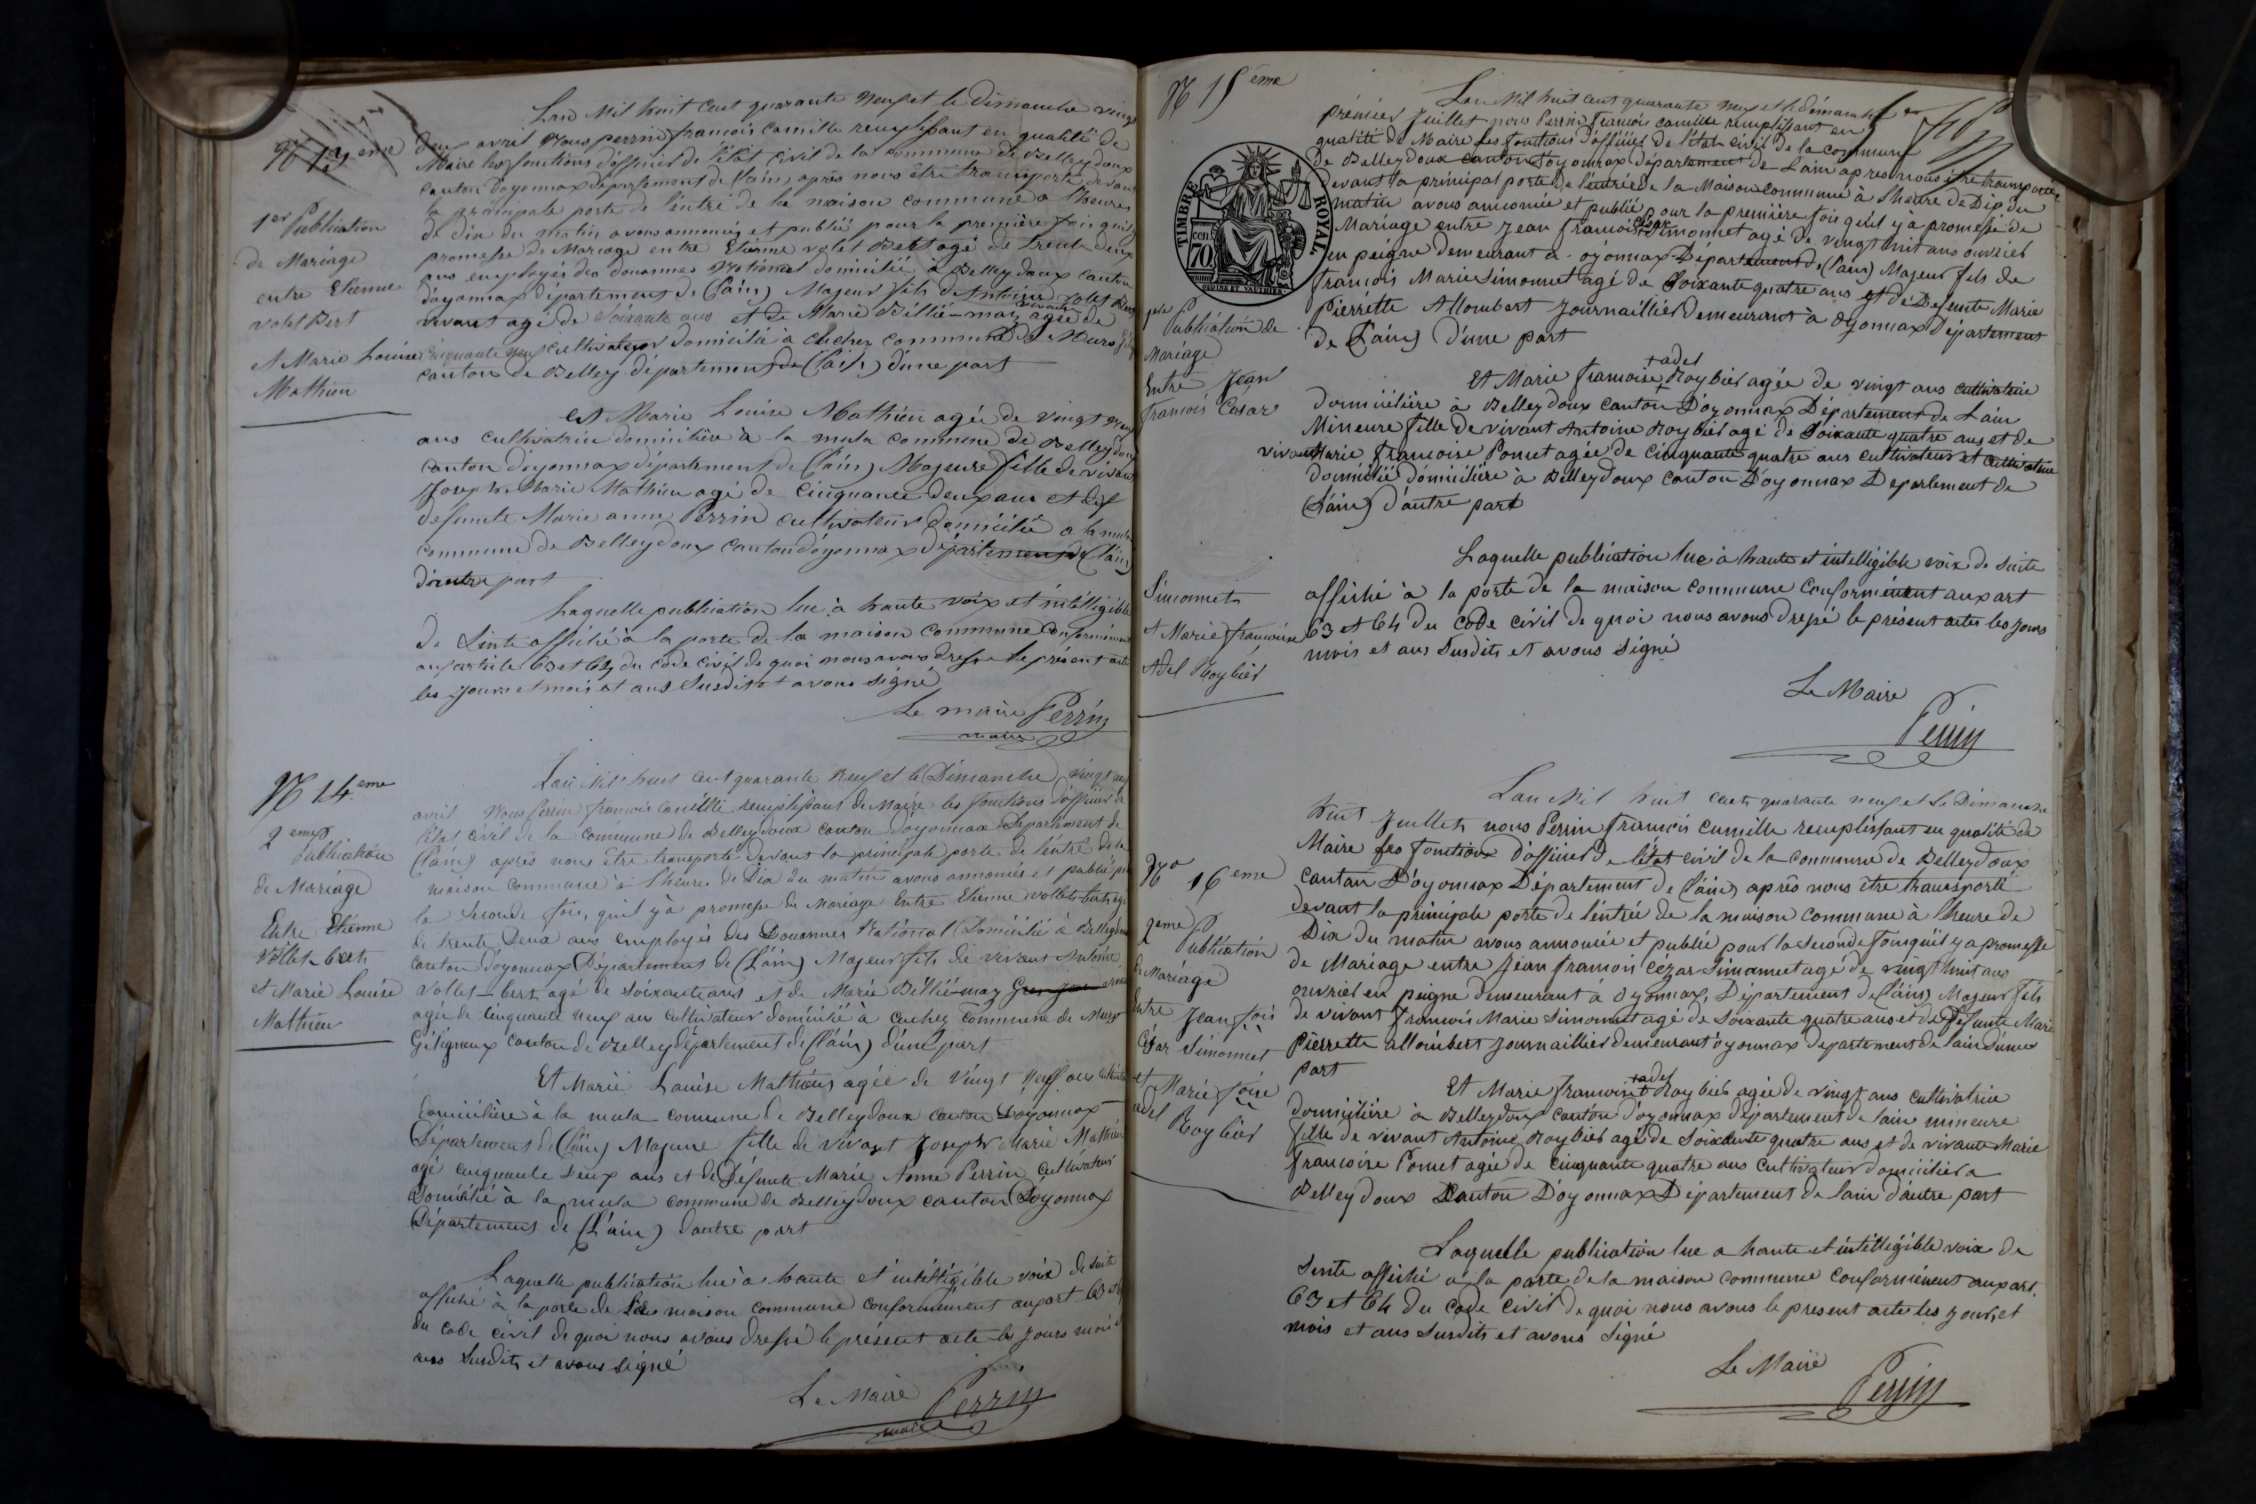 N° 13 eme
1er Publication
de Mariage
entre Etienne
volet Bert
et Marie Louise
Mathieu
Lan Mil huit cent quarante neuf et le Dimanche vingt
deux avril Nous perrin francois camille remplissant en qualité de
Maire les fonctions d'officier de l'état civil de la commune de Belleydoux
canton d'oyonnax département de (l'ain) après nous être transporté devant
la principale porte de l'entré de la maison commune a l'heure
de dix du matin avons annoncés et publié pour la première fois qu'il y
promesse de Mariage entre Etienne volet Bert agé de trente deux
ans employés des douannes National domicilié à Belleydoux canton
d'oyonnax département de (l'ain) Majeur fils de Antoine volet Bert
vivant agé de Soixante ans et de Marie Billié-maz agée de
cinquante neuf cultivateur domicilié à cuchez commune de Murs
canton de Belley département de (l'ain) d'une part
Et Marie Louise Mathieu agée de vingt neuf
ans cultivatrice domicilière à la mula commune de Belleydoux
canton d'oyonnax département de (l'ain) Majeure fille de vivant
Joseph Marie Mathieu agé de cinquante deux ans et de
defunte Marie anne Perrin cultivateur domicilié a la mula
commune de Belleydoux canton d'oyonnax département de (l'ain)
d'autre part
Laquelle publication lue à haute voix et intélligible
de Suite affiché à la porte de la maison commune conformément
au article 63 et 64 du code civil de quoi nous avons dressé le présent acte
les jours et mois et ans Susdits et avons signé
Le maire Perrin
maire
N° 14 eme
2 eme Publication
de Mariage
Entre Etienne
Vollet-bert
et Marie Louise
Mathieu
Lan Mil huit cent quarante neuf et le Dimanche vingt neuf
avril Nous Perrin francois camille remplissant de Maire les fonctions d'officier de
l'état civil de la commune de Belleydoux canton d'oyonnax Département de
(l'ain) après nous être transporté devant la principale porte de l'entré de la
maison commune à l'heure de Dix du matin avons annoncés et publié pr
la Seconde fois, qu'il y a promesse de Mariage Entre Etienne vollet-bert agé
de trente Deux ans employés des Douannes National Domicilié à Belleydoux
canton d'oyonnax Département de (L'ain) Majeur fils de vivant Antoine
vollet-bert agé de soixante ans et de Marie Billié-maz
agée de cinquante neuf ans cultivateur domicilié à cuchez commune de Murs
Gétigneux canton de Belley département de (l'ain) d'une part
Et Marie Louise Mathieu agée de vingt neuf ans
domicilière à la mula commune de Belleydoux canton D'oyonnax
Département de (l'ain) Majeure fille de vivant Joseph Marie Mathieu
agé cinquante deux ans et de Défunte Marie Anne Perrin cultivateur
Domicilié à la mula commune de Belleydoux canton D'oyonnax
Département de (L'ain) dautre part
Laquelle publication lue à haute et intélligible voix de suite
affiché à la porte de la maison commune conformément au part 63 et
du code civil de quoi nous avons dressé le présent acte les jours mois
ans Susdits et avons signé
Le Maire Perrin
maire
N° 15 eme
TIMBRE ROYAL
cen
70
1ere Publication de
Mariage
Entre Jean
francois Cesar
Simonnet
et Marie francoise
Adel Roybier
Lan Mil huit cent quarante neuf et le démanche
prémier Juillet nous Perrin francois camille remplissant en
qualité de Maire les fonctions d'officier de l'état civil de la commune
de Belleydoux canton D'oyonnax département de Lain apres nous être transporté
devant la principal porte de l'entrée de la Maison commune à l'heure de Dix du
matin avons annoncée et publié pour la première fois qu'il y à promesse de
Mariage entre Jean francois Cesar Simonnet agé de vingt huit ans ouvrier
en peigne demeurant a oyonnax Département de (l'ain) Majeur fils de
francois Marie Simonnet agé de Soixante quatre ans et de Defunte Marie
Pierrétte Allombert Journaillier demeurant à oyonnax Département
de (l'ain) d'une part
Et Marie francoise +adel Roybier agée de vingt ans cultivatrice
domicilière à Belleydoux canton D'oyonnax Département de Lain
Mineure fille de vivant Antoine Roybier agé de Soixante quatre ans et de
vivante Marie francoise Pomet agée de cinquante quatre ans cultivateur et cultivatrice
domicilié domicilière à Belleydoux canton D'oyonnax Département de
(L'ain) d'autre part
Laquelle publication lue à haute et intélligible voix de suite
affiché à la porte de la maison commune conformément au part
63 et 64 du code civil de quoi nous avons dressé le présent actes les jours
mois et ans Susdits et avons signé
Le Maire
Perrin
N° 16 eme
2eme Publication
de Mariage
Entre Jean fois
César Simonnet
et Marie foise
adel Roybier
Lan Mil huit cent quarante neuf et le Dimanche
huit Juillet nous Perrin francois camille remplissant en qualité de
Maire les fonctions d'officier de l'état civil de la commune de Belleydoux
canton D'oyonnax Département de (l'ain) après nous être transporté
devant la principale porte de l'entrée de la maison commune à l'heure de
Dix du matin avons annoncée et publié pour la seconde fois qu'il y a promesse
de Mariage entre Jean francois Cézar Simonnet agé de vingt huit ans
ouvrier en peigne demeurant à oyonnax, Département de (l'ain) Majeur fils
de vivant francois Marie Simonnet agé de Soixante quatre ans et de Défunte Marie
Pierrette allombert Journaillier demeurant oyonnax département de lain dune
part
Et Marie francoise +adel Roybier agée de vingt ans cultivatrice
domicilière à Belleydoux canton d'oyonnax département de lain mineure
fille de vivant Antoine Roybier agé de Soixante quatre ans et de vivante Marie
francoise Pomet agée de cinquante quatre ans cultivateur domicilier a
Belleydoux Canton D'oyonnax Département de lain d'autre part
Laquelle publication lue a haute et intélligible voix de
Suite affiché a la porte de la maison commune conformément au part.
63 et 64 du code civil de quoi nous avons le présent actes les jours, et
mois et ans Susdits et avons Signé
Le Maire
Perrin